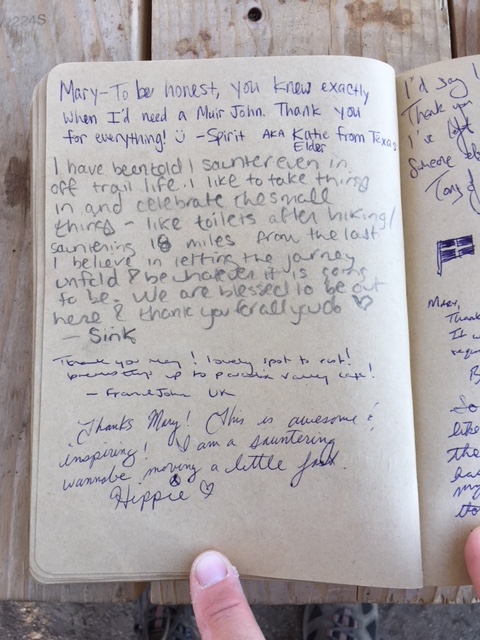 Mary-To be honest, you knew exactly
when I'd need a Muir John. Thank you
for everything! -Spirit AKA Katie from Texas
Elder
I have been told I saunter even in
off trail life. I like to take things
in and celebrate the small
things - like toilets after hiking/
sauntering 18 miles from the last
I believe in letting the journey
unfold & be whatever it is going
to be. We are blessed to be out
here & thank you for all you do ♡
- Sink
Thank you Mary! lovely spot to rest!
up to paradise valley cafe!
- John UK
Thanks Mary! This is awesome &
inspiring! I am a sauntering
wannabe moving a little fast.
Hippie ♡
I'd say
Thank you
I've
Someone
Tony
Mary,
Thank
It
So
like
the